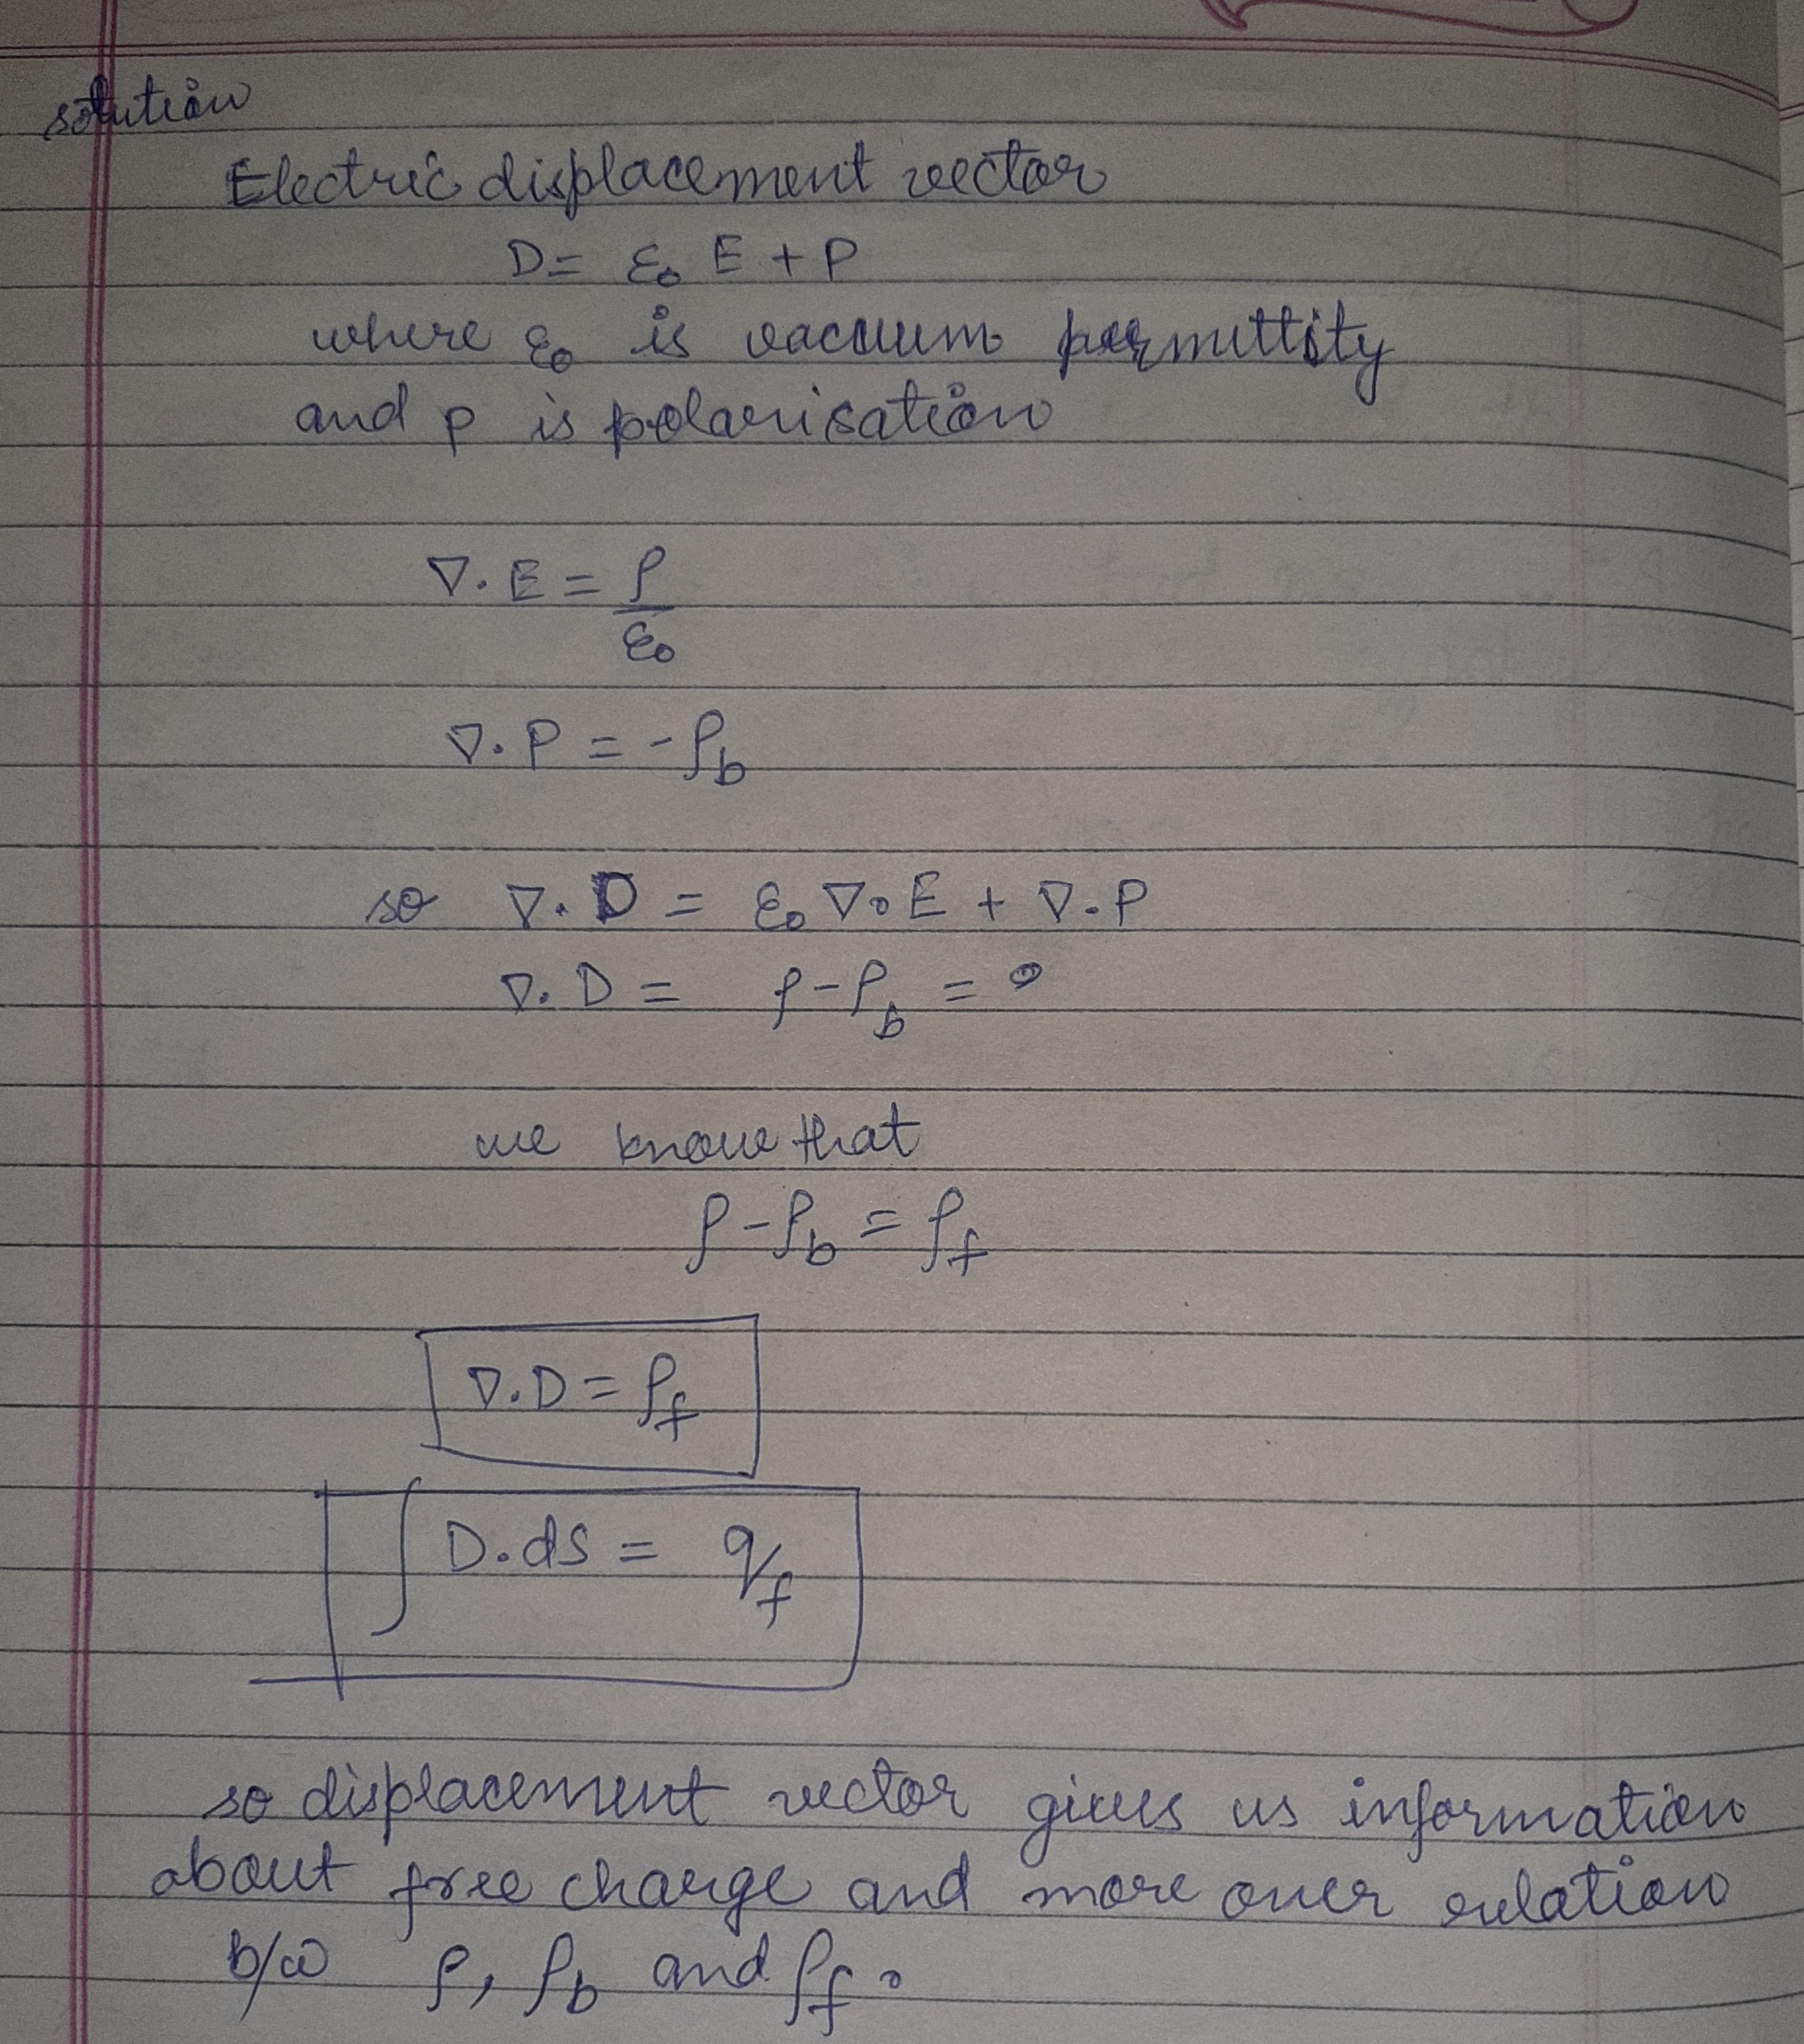 solution
Electric displacement vector
D = ε₀ E + P
where ε₀ is vacuum permittity
and p is polarisation
∇. E = ρ/ε₀
∇. P = -ρb
so ∇. D = ε₀ ∇. E + ∇. P
∇. D = ρ - ρb =
we know that
ρ - ρb = ρf
∇. D = ρf
∫ D. ds = qf
so displacement vector gives us information
about free charge and more over relation
b/w ρ, ρb and ρf.